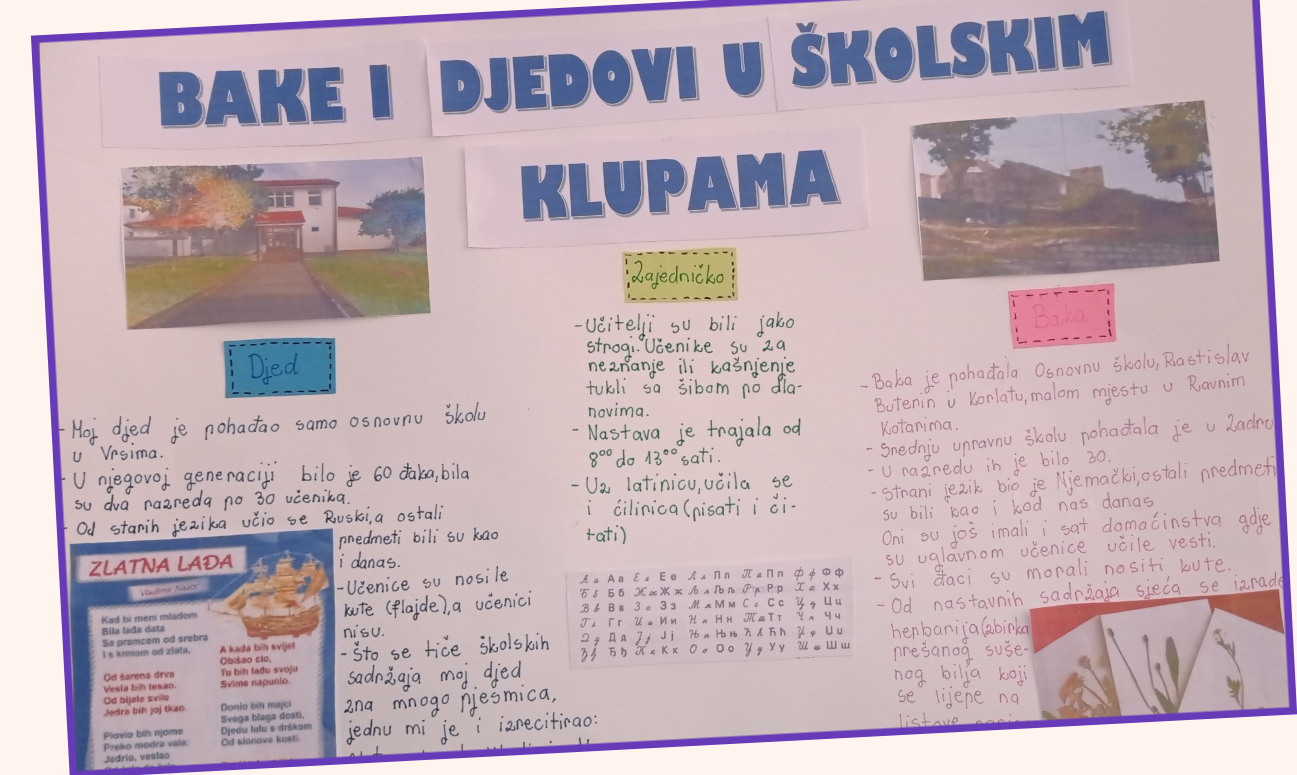 BAKE I DJEDOVI U ŠKOLSKIM
KLUPAMA
Djed
- Moj djed je pohađao samo osnovnu školu
u Vrsima.
- U njegovoj generaciji bilo je 60 đaka, bila
su dva razreda po 30 učenika.
- Od stranih jezika učio se Ruski, a ostali
predmeti bili su kao
i danas.
- Učenice su nosile
kute (flajde), a učenici
nisu.
- Što se tiče školskih
sadržaja moj djed
zna mnogo pjesmica,
jednu mi je i izrecitirao:
ZLATNA LAĐA
Vladimir Nazor
Kad bi meni mladom
Bila lađa data
Sa pramcem od srebra
I s krmom od zlata,
Od šarena drva
Vesla bih tesao.
Od bijele svile
Jedra bih joj tkao.
Plovio bih njome
Preko modra vala:
Jedrio, veslao
A kada bih svijet
Obišao cio,
Tu bih lađu svoju
Svime napunio.
Donio bih majci
Svega blaga dosti,
Djedu lulu s drškom
Od slonove kosti.
Zajedničko
- Učitelji su bili jako
strogi. Učenike su za
neznanje ili kašnjenje
tukli sa šibom po dla-
novima.
- Nastava je trajala od
8°° do 13°° sati.
- Uz latinicu, učila se
i ćilirica (pisati i či-
tati)
А а Е е Л л П п Ф ф
Б б Ж ж Љ љ Р р Х х
В в З з М м С с Ц ц
Г г И и Н н Т т Ч ч
Д д Ј ј Њ њ Ћ ћ Џ џ
Ђ ђ К к О о У у Ш ш
Baka
- Baka je pohađala Osnovnu školu, Rastislav
Butenin u Korlatu, malom mjestu u Ravnim
Kotarima.
- Srednju upravnu školu pohađala je u Zadru
- U razredu ih je bilo 30.
- Strani jezik bio je Njemački, ostali predmeti
su bili kao i kod nas danas
Oni su još imali i sat domaćinstva gdje
su uglavnom učenice učile vesti.
- Svi đaci su morali nositi kute.
- Od nastavnih sadržaja sjeća se izrade
herbarija (zbirka
prešanog suše-
nog bilja koji
se lijepe na
listove